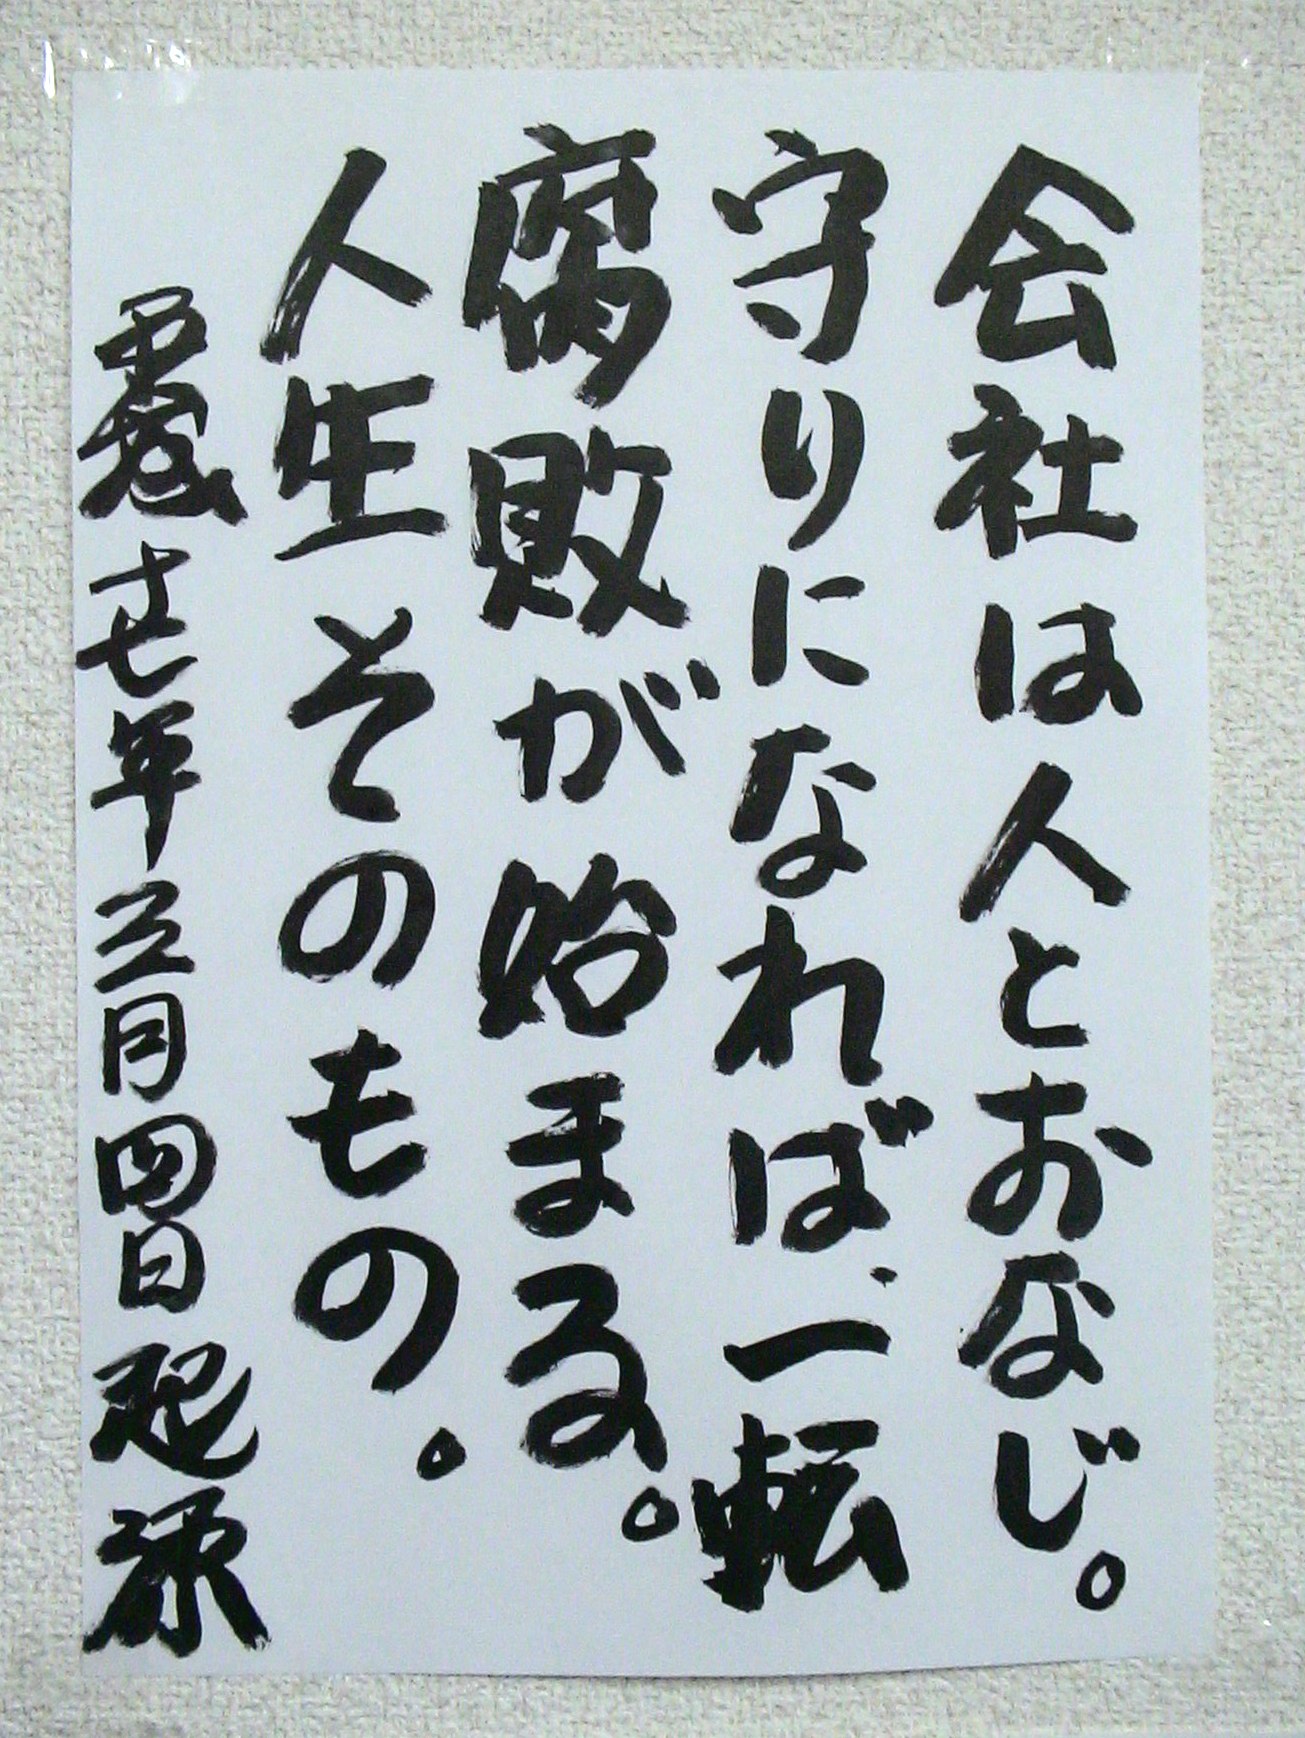 会社は人とおなじ。
守りになれば、一転
腐敗が始まる。
人生そのもの。
十七年三月四日